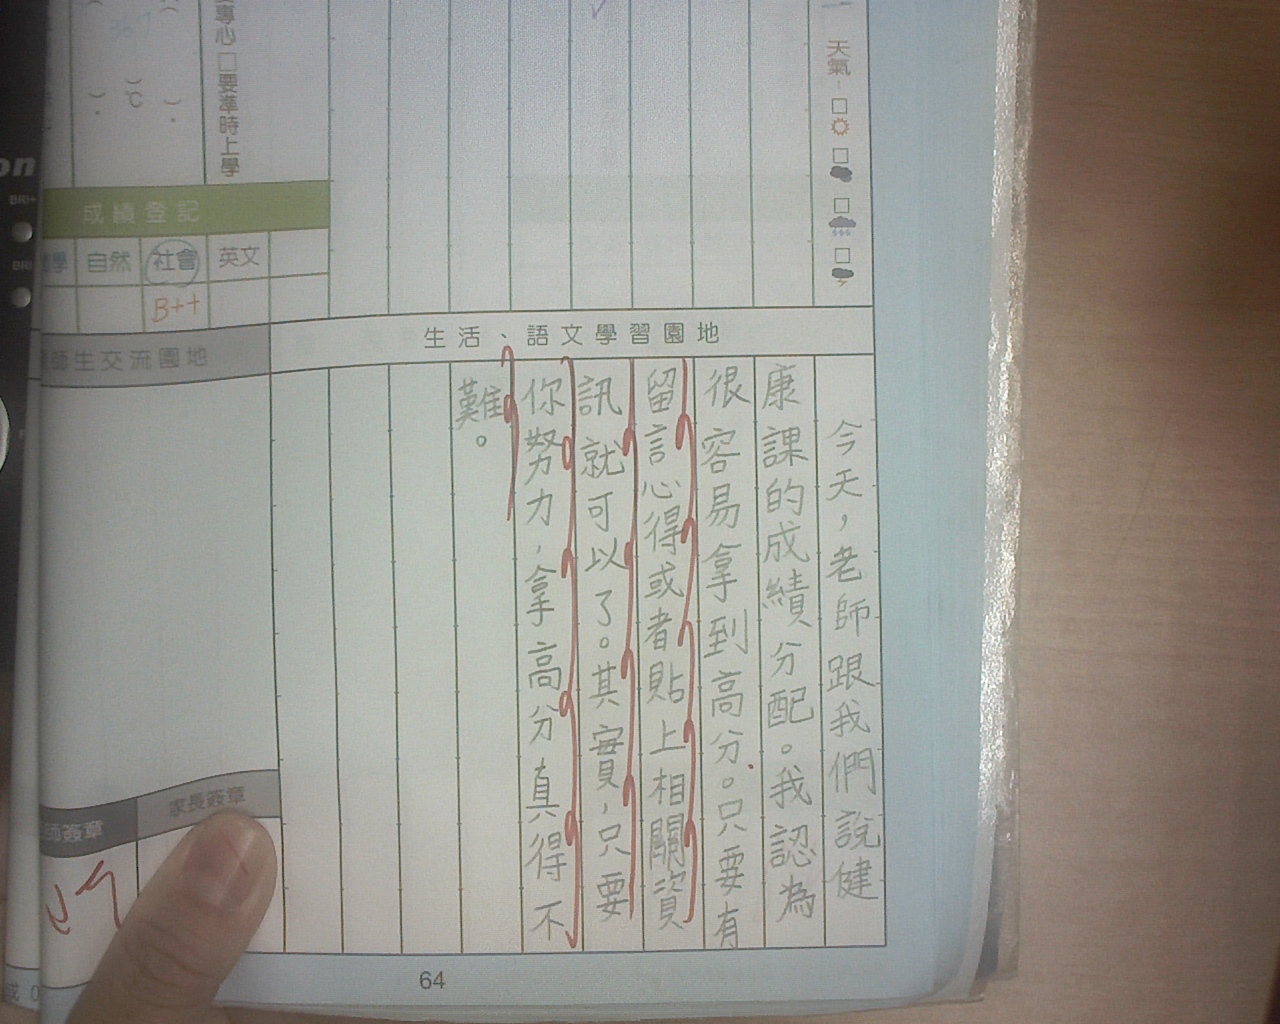 天氣
專心 □要準時上學
℃
成績登記
自然 社會 英文
B++
生活、語文學習園地
師生交流園地
今天，老師跟我們說健
康課的成績分配。我認為
很容易拿到高分。只要有
留言心得或者貼上相關資
訊就可以了。其實，只要
你努力，拿高分真得不
難。
家長簽章
師簽章
64
on
BRI
BRI